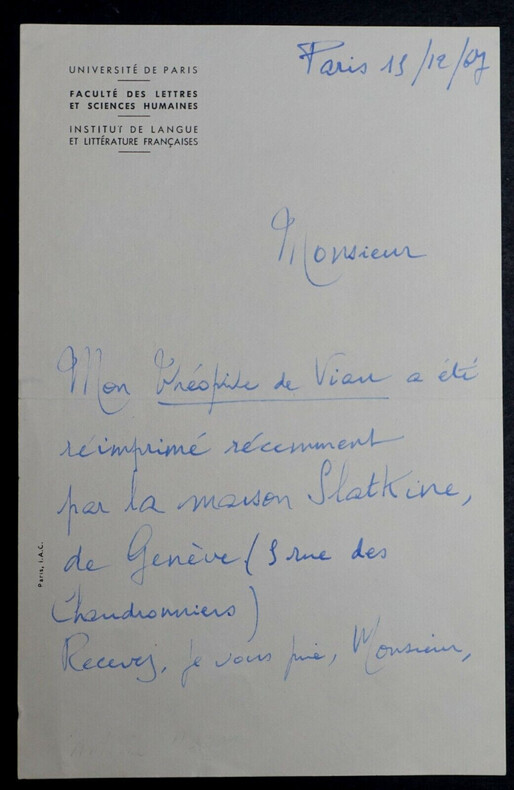 UNIVERSITÉ DE PARIS
FACULTÉ DES LETTRES
ET SCIENCES HUMAINES
INSTITUT DE LANGUE
ET LITTÉRATURE FRANÇAISES
Paris 15/12/67
Monsieur
Mon Théophile de Viau a été
réimprimé récemment
par la maison Slatkine,
de Genève (5 rue des
Chaudronniers)
Recevez, je vous prie, Monsieur,
Paris, I.A.C.